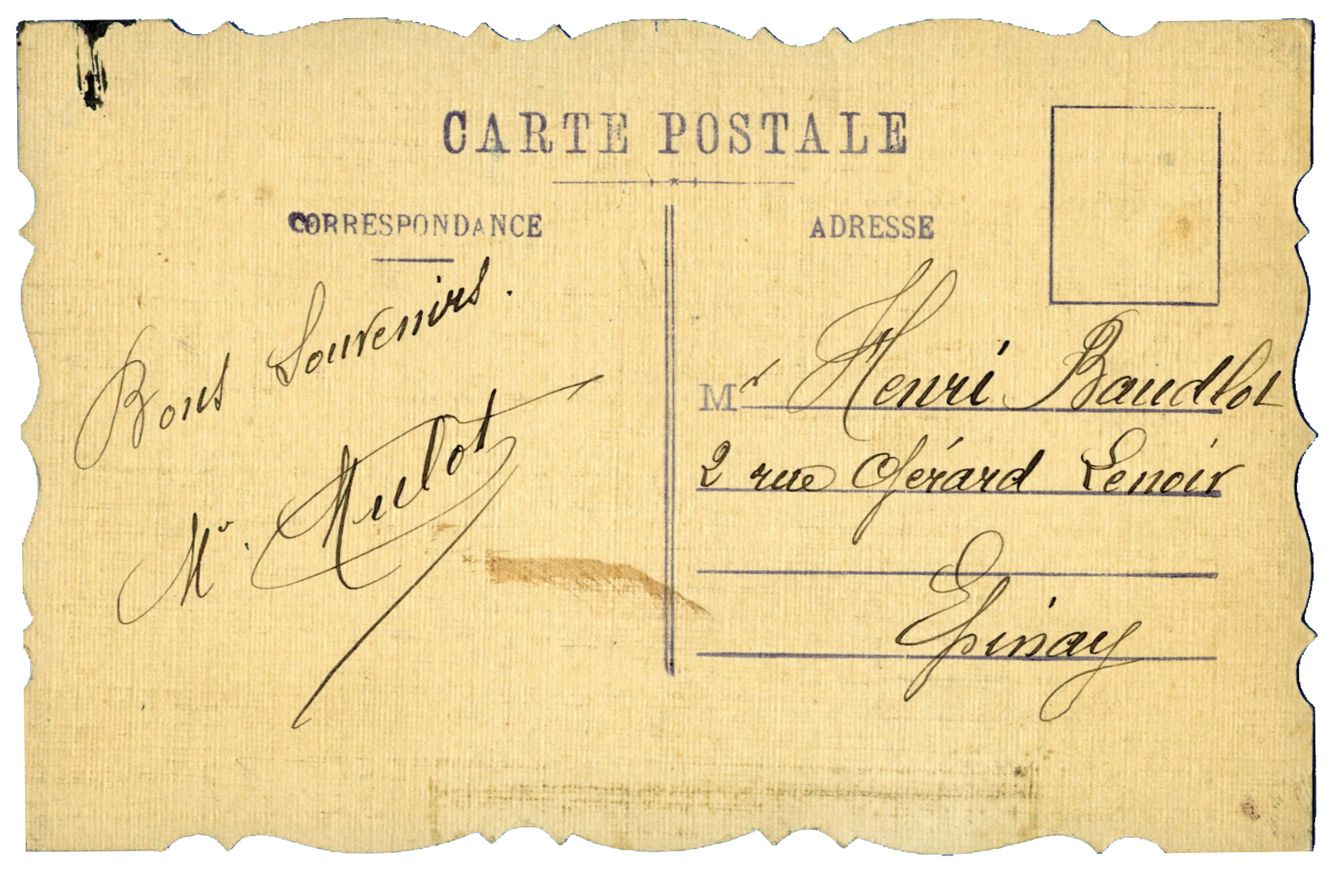 CARTE POSTALE
CORRESPONDANCE
Bons Souvenirs.
Mr. Mulot
ADRESSE
Mr Henri Baudlot
2 rue Gérard Lenoir
Epinay